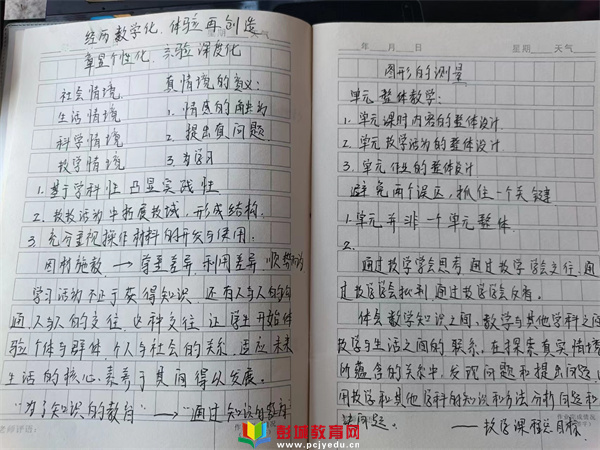 经历数学化 体验再创造
尊重个性化 实验深度化
星期 天气
社会情境 真情境的意义:
生活情境 1. 情感的触动
科学情境 2. 提出真问题
数学情境 3.
1. 基于学科性 凸显实践性
2. 教学活动中拓展领域,形成结构.
3. 充分重视操作材料的开发与使用.
因材施教 → 尊重差异 利用差异
学习活动不止于获得知识,还有人与人的沟
通,人与人的交往,这种交往,让学生开始体
验个体与群体,个人与社会的关系,适应未来
生活的核心素养于其间得以发展。
“为了知识的教育” → “通过知识的教育
老师评语:
年 月 日 星期 天气
图形的测量
单元整体教学:
1. 单元课时内容的整体设计
2. 单元教学活动的整体设计
3. 单元作业的整体设计
避免两个误区,抓住一个关键
1. 单元并非一个单元整体.
2.
通过数学学会思考,通过数学学会交往,通
过数学学会批判,通过数学学会反省。
体会数学知识之间,数学与其他学科之间
数学与生活之间的联系,在探索真实情境
所蕴含的关系中,发现问题和提出问题,
用数学和其他学科的知识和方法分析问题和
决问题。 ——数学课程总目标
彭城教育网
www.pcjyedu.cn